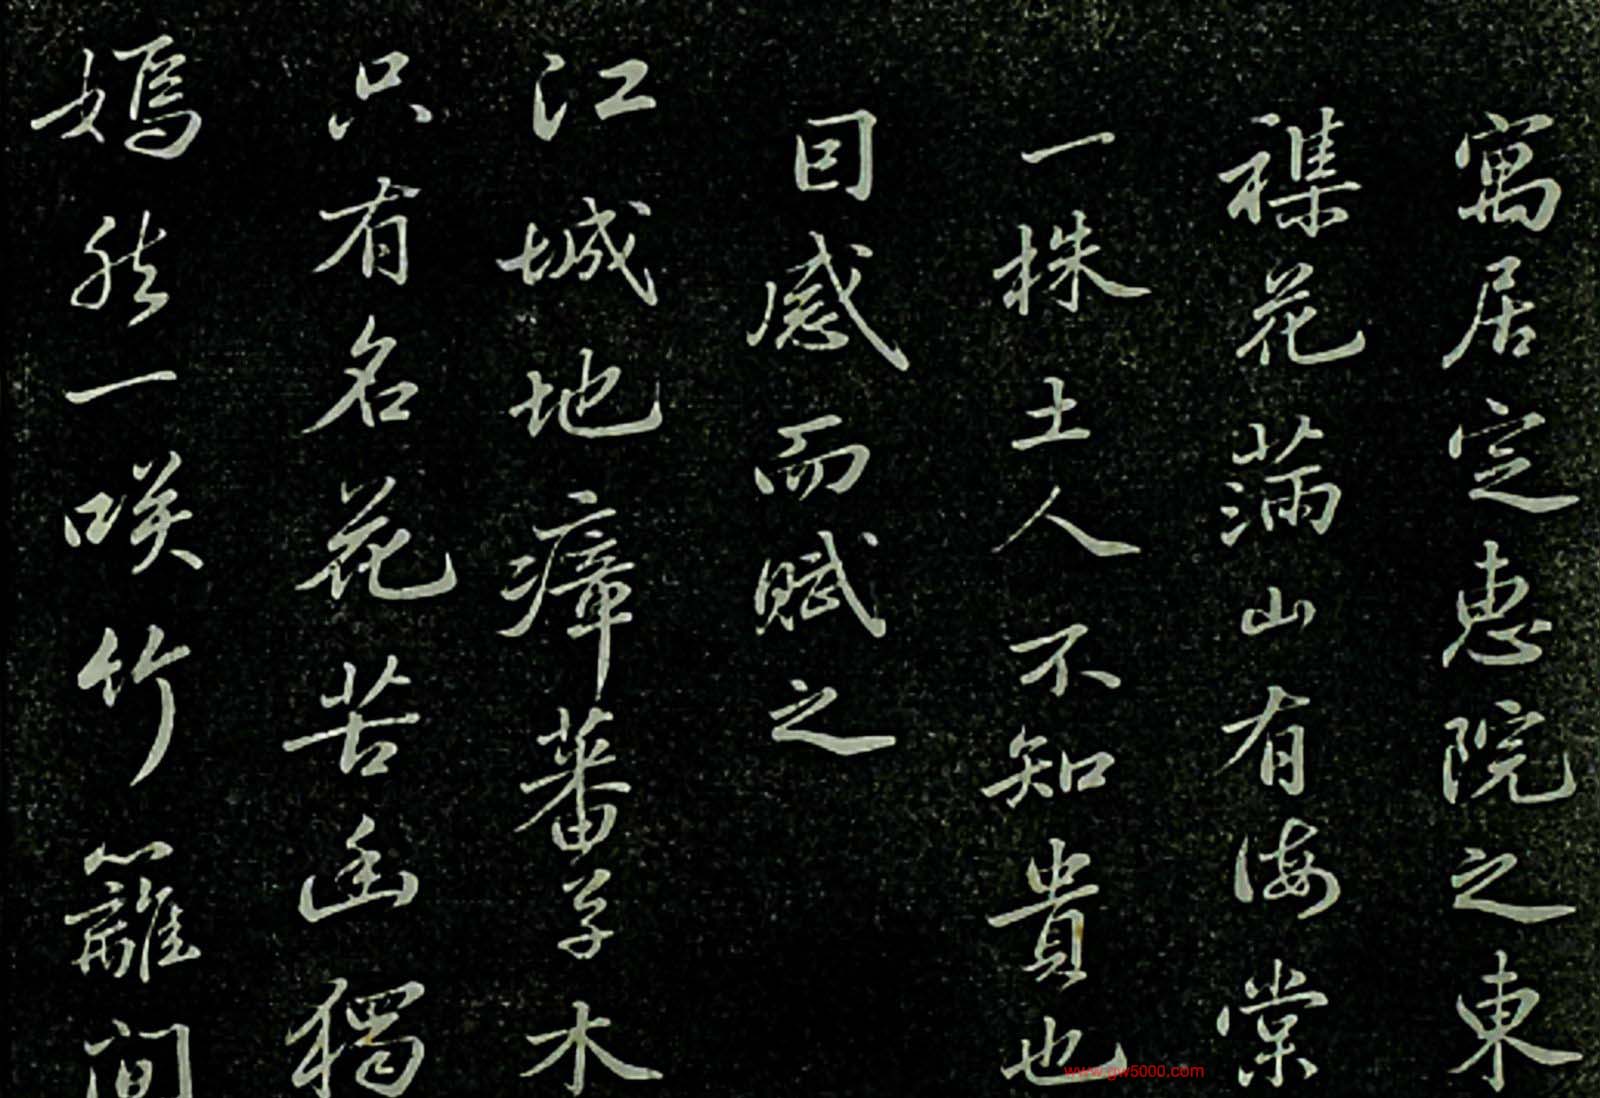 寓居定惠院之東
襍花滿山有海棠
一株土人不知貴也
囙感而賦之
江城地瘴蕃草木
只有名花苦幽獨
嫣然一咲竹籬間
www.gw5000.com